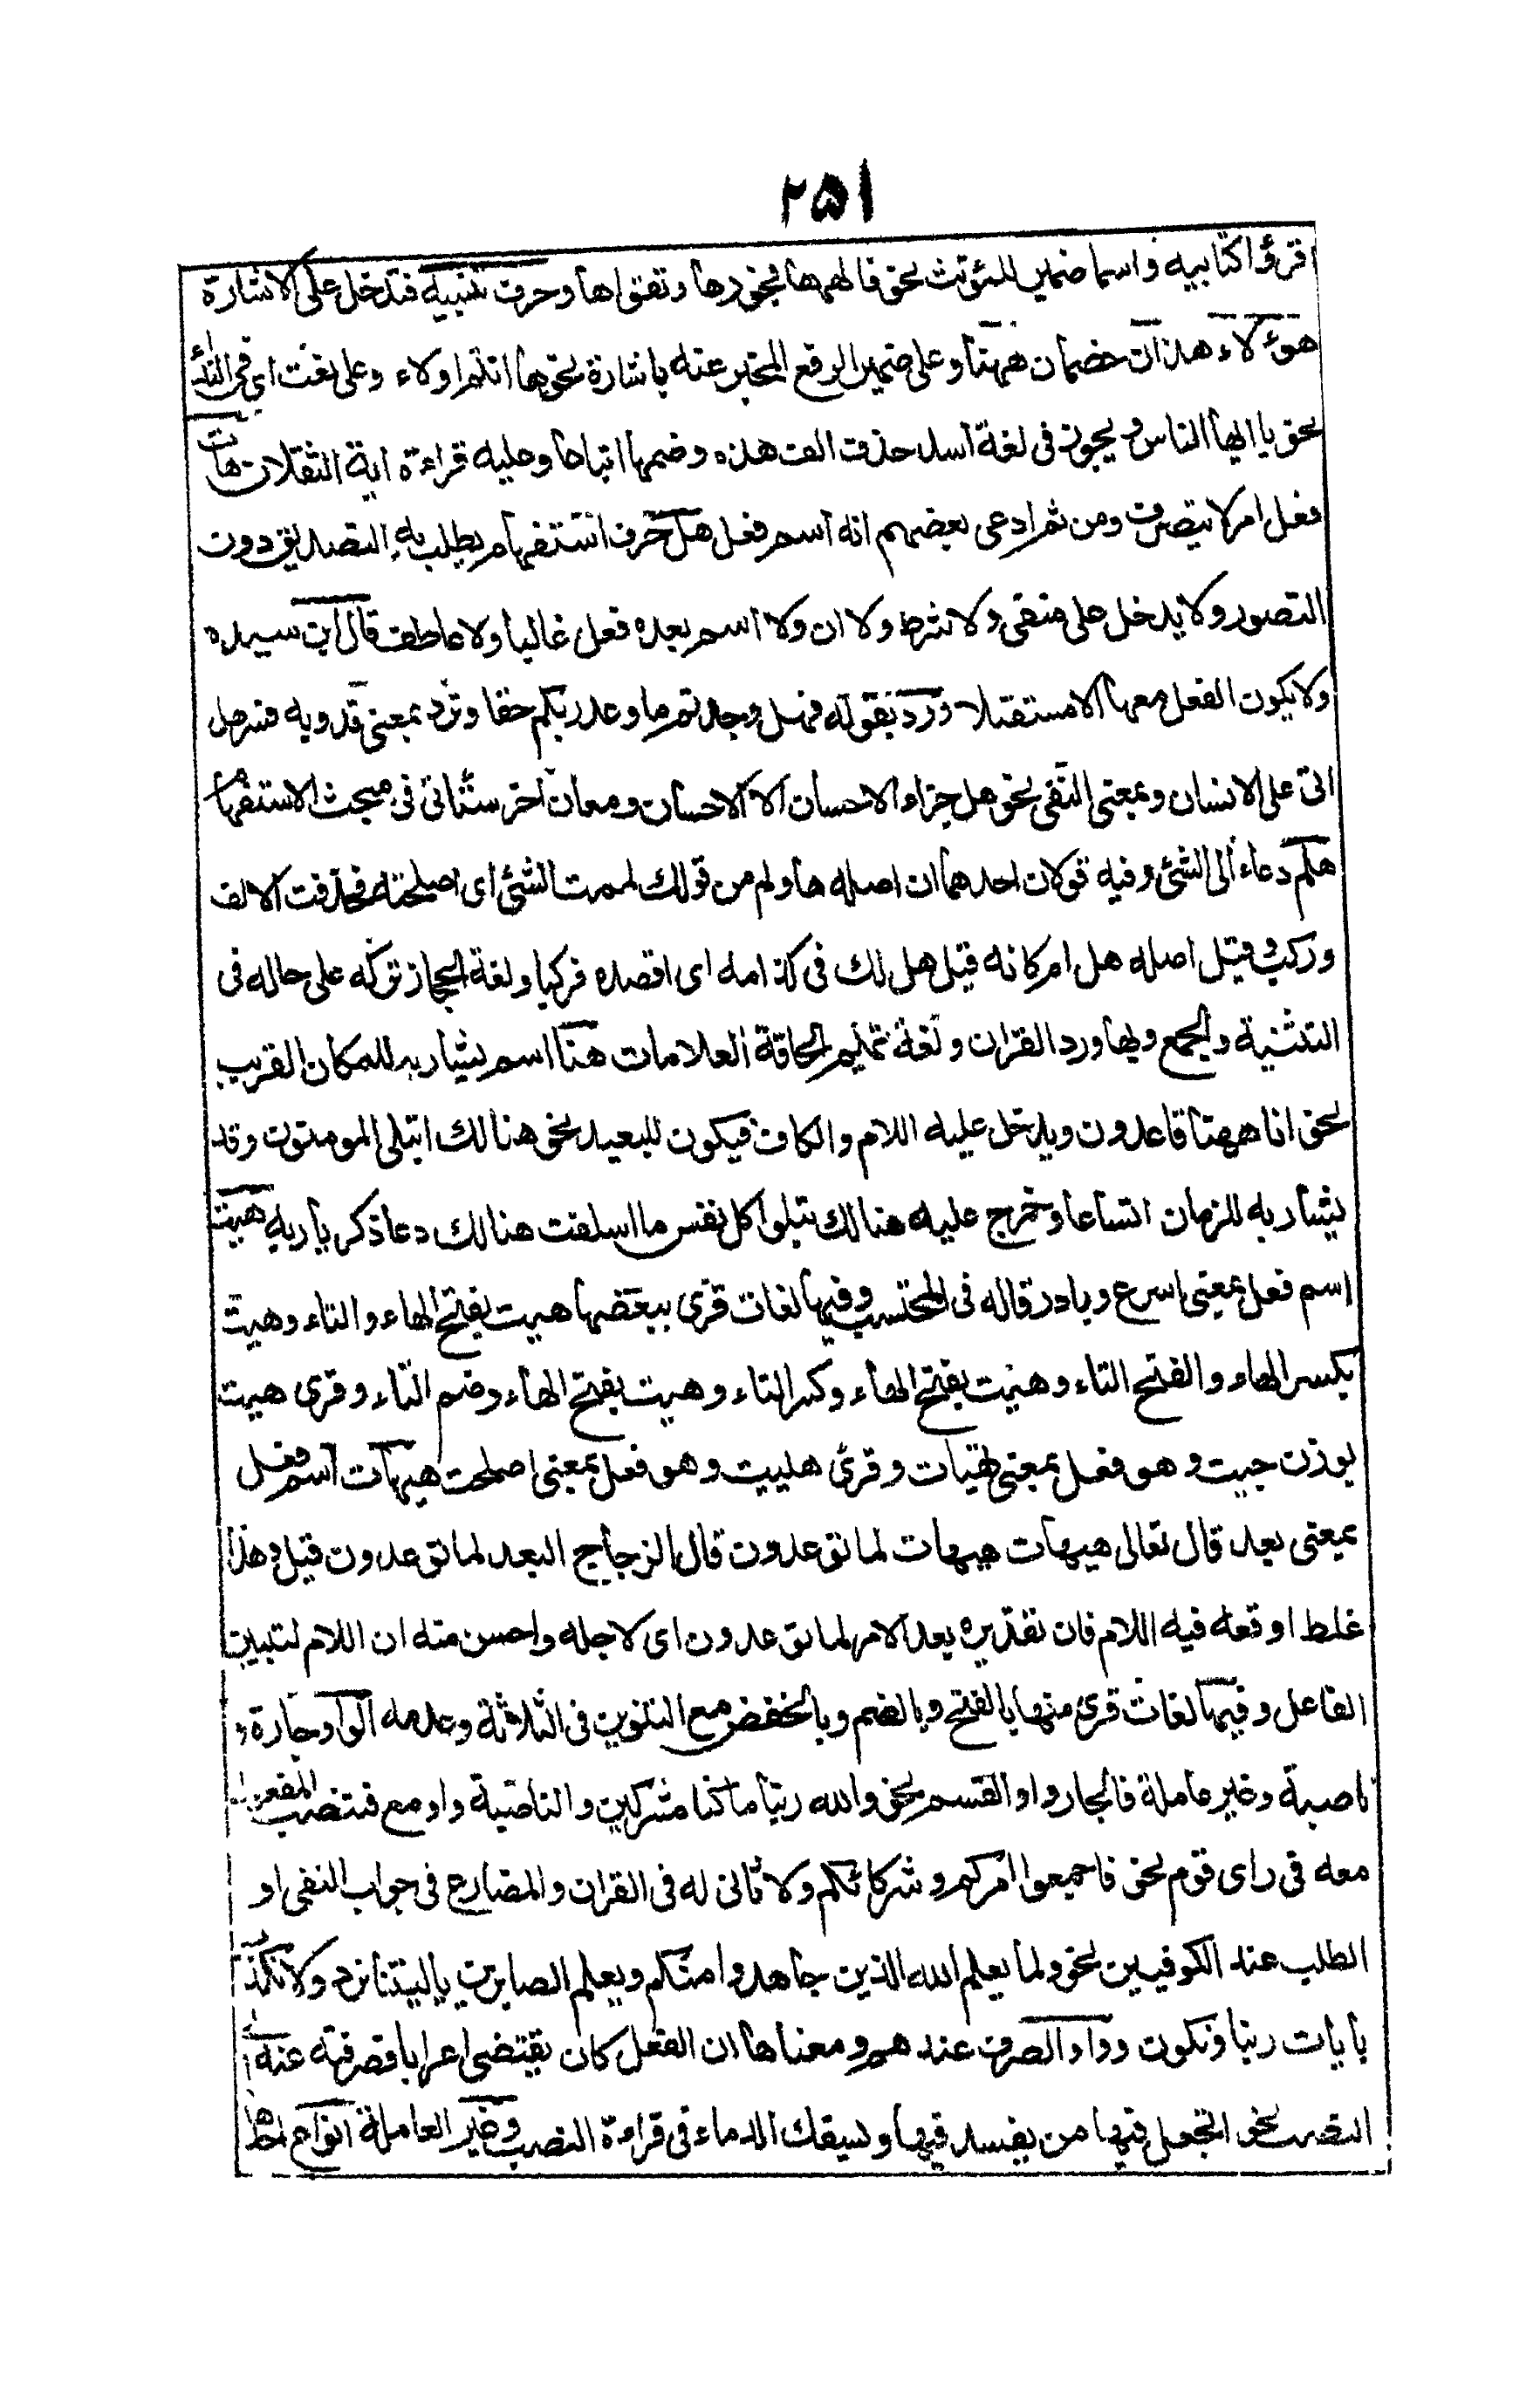 ٢٥١
اقرؤا كتابيه واسما ضمير للمؤنث نحو فالهمها فجورها وتقواها وحرف تنبيه فتدخل على الاشارة
هؤلاء هذان خصمان ههنا وعلى ضمير الرفع المخبر عنه باشارة نحو ها انتم اولاء وعلى نعت اى فى النداء
نحو يا ايها الناس ويجوز فى لغة اسد حذف الف هذه وضمها اتباعا وعليه قراءة ايه الثقلان هات
فعل امر لا يتصرف ومن ثم ادعى بعضهم انه اسم فعل هل حرف استفهام يطلب به التصديق دون
التصور ولا يدخل على منفى ولا شرط ولا ان ولا اسم بعده فعل غالبا ولا عاطف قال ابن سيده
ولا يكون الفعل معها الا مستقبلا ورد بقوله فهل وجدتم ما وعد ربكم حقا وترد بمعنى قد وبه فسر هل
اتى على الانسان وبمعنى النفى نحو هل جزاء الاحسان الا الاحسان ومعان اخر ستاتى فى مبحث الاستفهام
هلم دعاء الى الشئ وفيه قولان احدهما ان اصله ها ولم من قولك لممت الشئ اى اصلحته فحذفت الالف
وركب وقيل اصله هل ام كانه قيل هل لك فى كذا امه اى اقصده فركبا ولغة الحجاز تركه على حاله فى
التثنية والجمع وبها ورد القران ولغة تميم الحاقة العلامات هنا اسم يشار به للمكان القريب
نحو انا ههنا قاعدون ويدخل عليه اللام والكاف فيكون للبعيد نحو هنالك ابتلى المومنون وقد
يشار به للزمان اتساعا وخرج عليه هنالك تبلوا كل نفس ما اسلفت هنالك دعا ذكريا ربه هيت
اسم فعل بمعنى اسرع وبادر قاله فى المحتسب وفيها لغات قرى ببعضها هيت بفتح الهاء والتاء وهيت
بكسر الهاء والفتح التاء وهيت بفتح الهاء وكسر التاء وهيت بفتح الهاء وضم التاء وقرى هيت
بوزن جيت وهو فعل بمعنى تهيات وقرئ هييت وهو فعل بمعنى اصلحت هيهات اسم فعل
بمعنى بعد قال تعالى هيهات هيهات لما توعدون قال الزجاج البعد لما توعدون قيل وهذا
غلط اوقعه فيه اللام فان تقديره بعد الامر لما توعدون اى لاجله واحسن منه ان اللام لتبيين
الفاعل وفيها لغات قرئ منها بالفتح وبالضم وبالخفض مع التنوين فى الثلاثة وعدمه الواو جارة و
ناصبة وغير عاملة فالجار واو القسم نحو والله ربنا ما كنا مشركين والناصبة واو مع فتنصب المفعول
معه فى راى قوم نحو فاجمعوا امركم وشركائكم ولا ثانى له فى القران والمضارع فى جواب النفى او
الطلب عند الكوفيين نحو ولما يعلم الله الذين جاهدوا منكم ويعلم الصابرين يا ليتنا نرد ولا نكذب
بايات ربنا ونكون وواو الصرف عندهم ومعناها ان الفعل كان يقتضى اعرابا فصرفته عنه الى
النصب نحو اتجعل فيها من يفسد فيها ويسفك الدماء فى قراءة النصب وغير العاملة انواع احدها